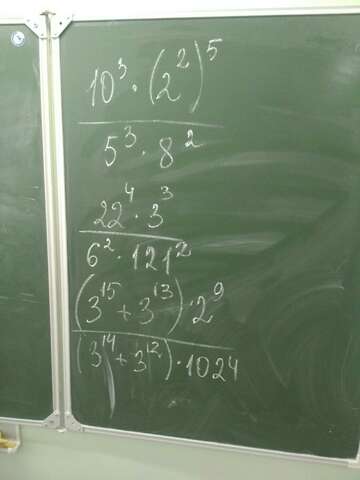 10³ · (2²)⁵
5³ · 8²
22⁴ · 3³
6² · 121²
(3¹⁵ + 3¹³) · 2⁹
(3¹⁴ + 3¹²) · 1024